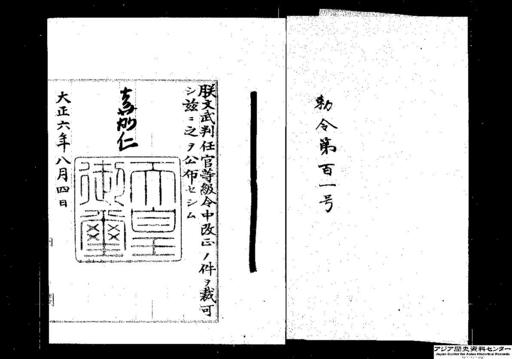 勅令第百一号
朕文武判任官等級令中改正ノ件ヲ裁可
シ茲ニ之ヲ公布セシム
嘉仁
天皇
御璽
大正六年八月四日
アジア歴史資料センター
Japan Center for Asian Historical Records